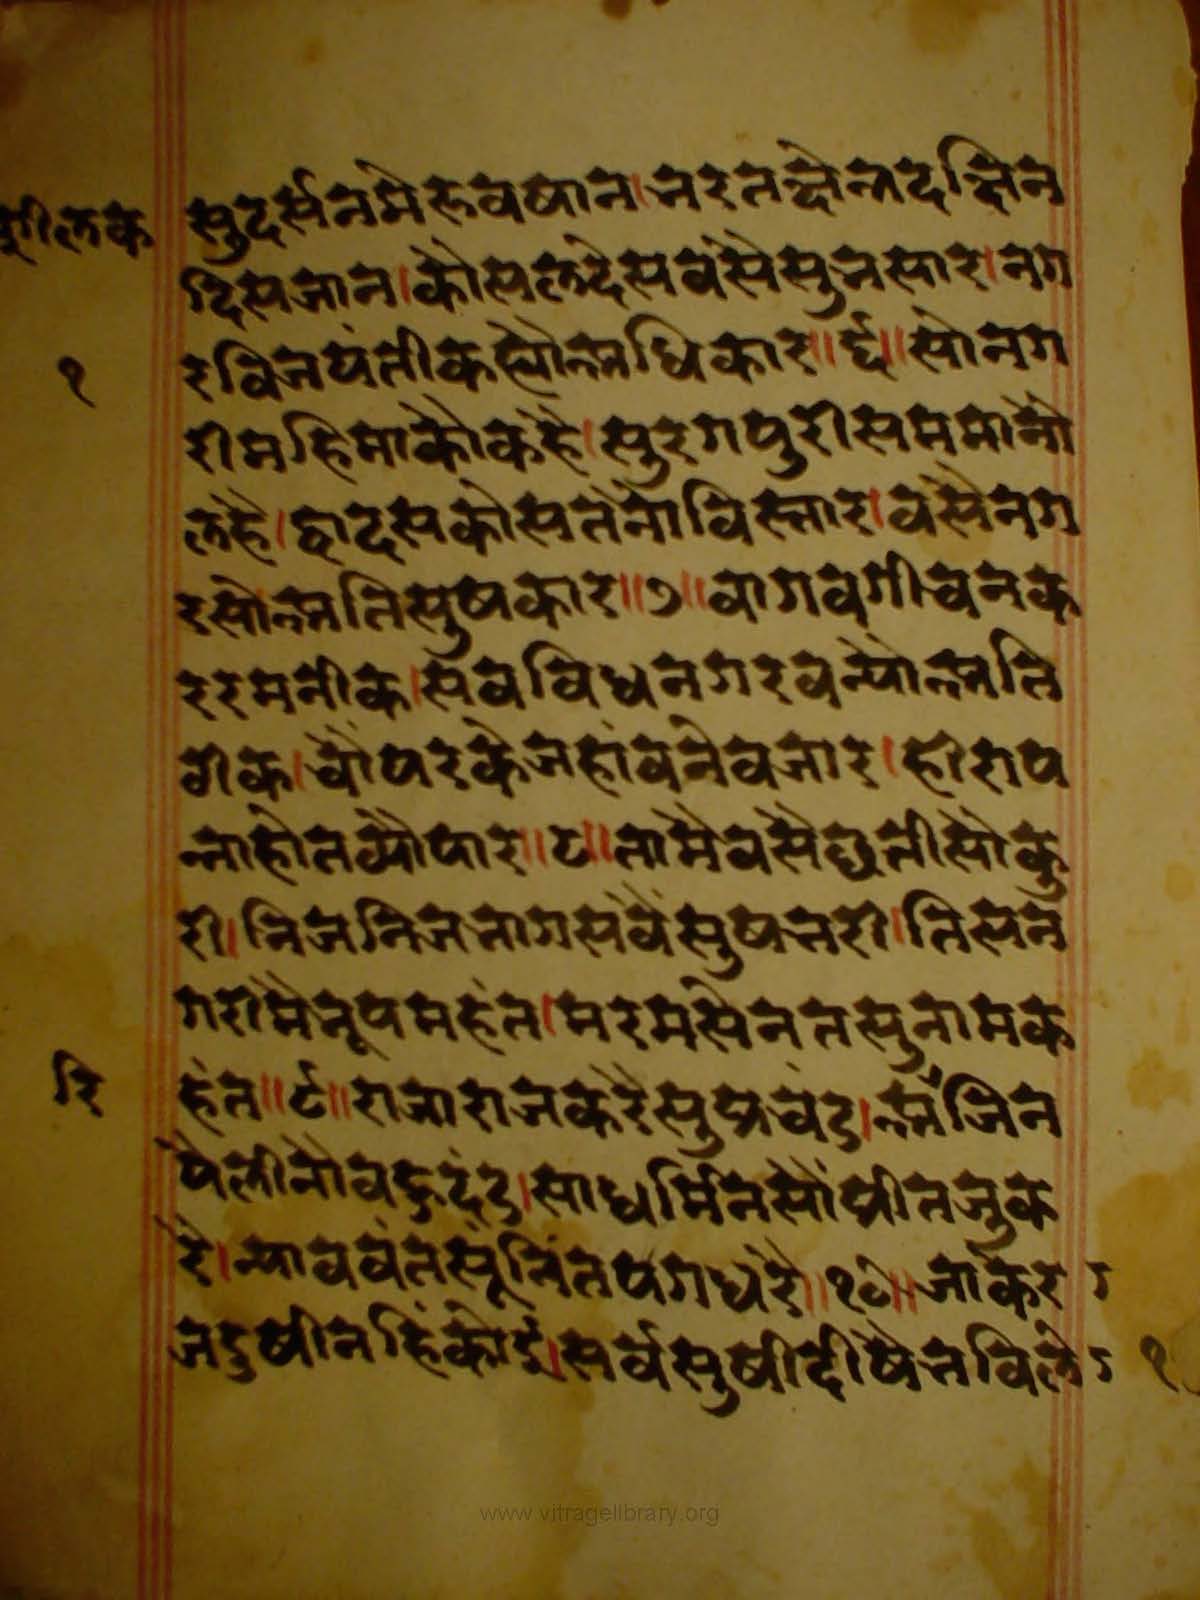 सुदर्सनमेरूवषान।भरतछेत्रदछिन
दिसजान।कौसलदेसवसैसुभसार।नग
रविजयंतीकह्योअधिकार॥६॥सोनग
रीमहिमाकोकहै।सुरगपुरीसममानौ
लहै।द्वादसकोसतनोविस्तार।वसैनग
रसोअतिसुषकार॥७॥वागवगीचनक
ररमनीक।सवविधनगरवन्योअति
ठीक।चौपरकेजहांवनेवजार।हीराप
न्नाहोतव्यौपार॥८॥तामैवसैछतीसोंकु
री।निजनिजभागसवैसुषभरी।तिसन
गरीमैभूपमहंत।मरमसेनतसुनामक
हंत॥९॥राजाराजकरैसुप्रचंड।अैजिन
पैलीनोवहुदंड।साधर्मिनसौंप्रीतजुक
रै।न्याववंतसूनिंतपगधरै॥१०॥जाकेर
जदुषीनहिंकोई।सर्वसुषीदीषेतविले
१
रि
१
www.vitragelibrary.org